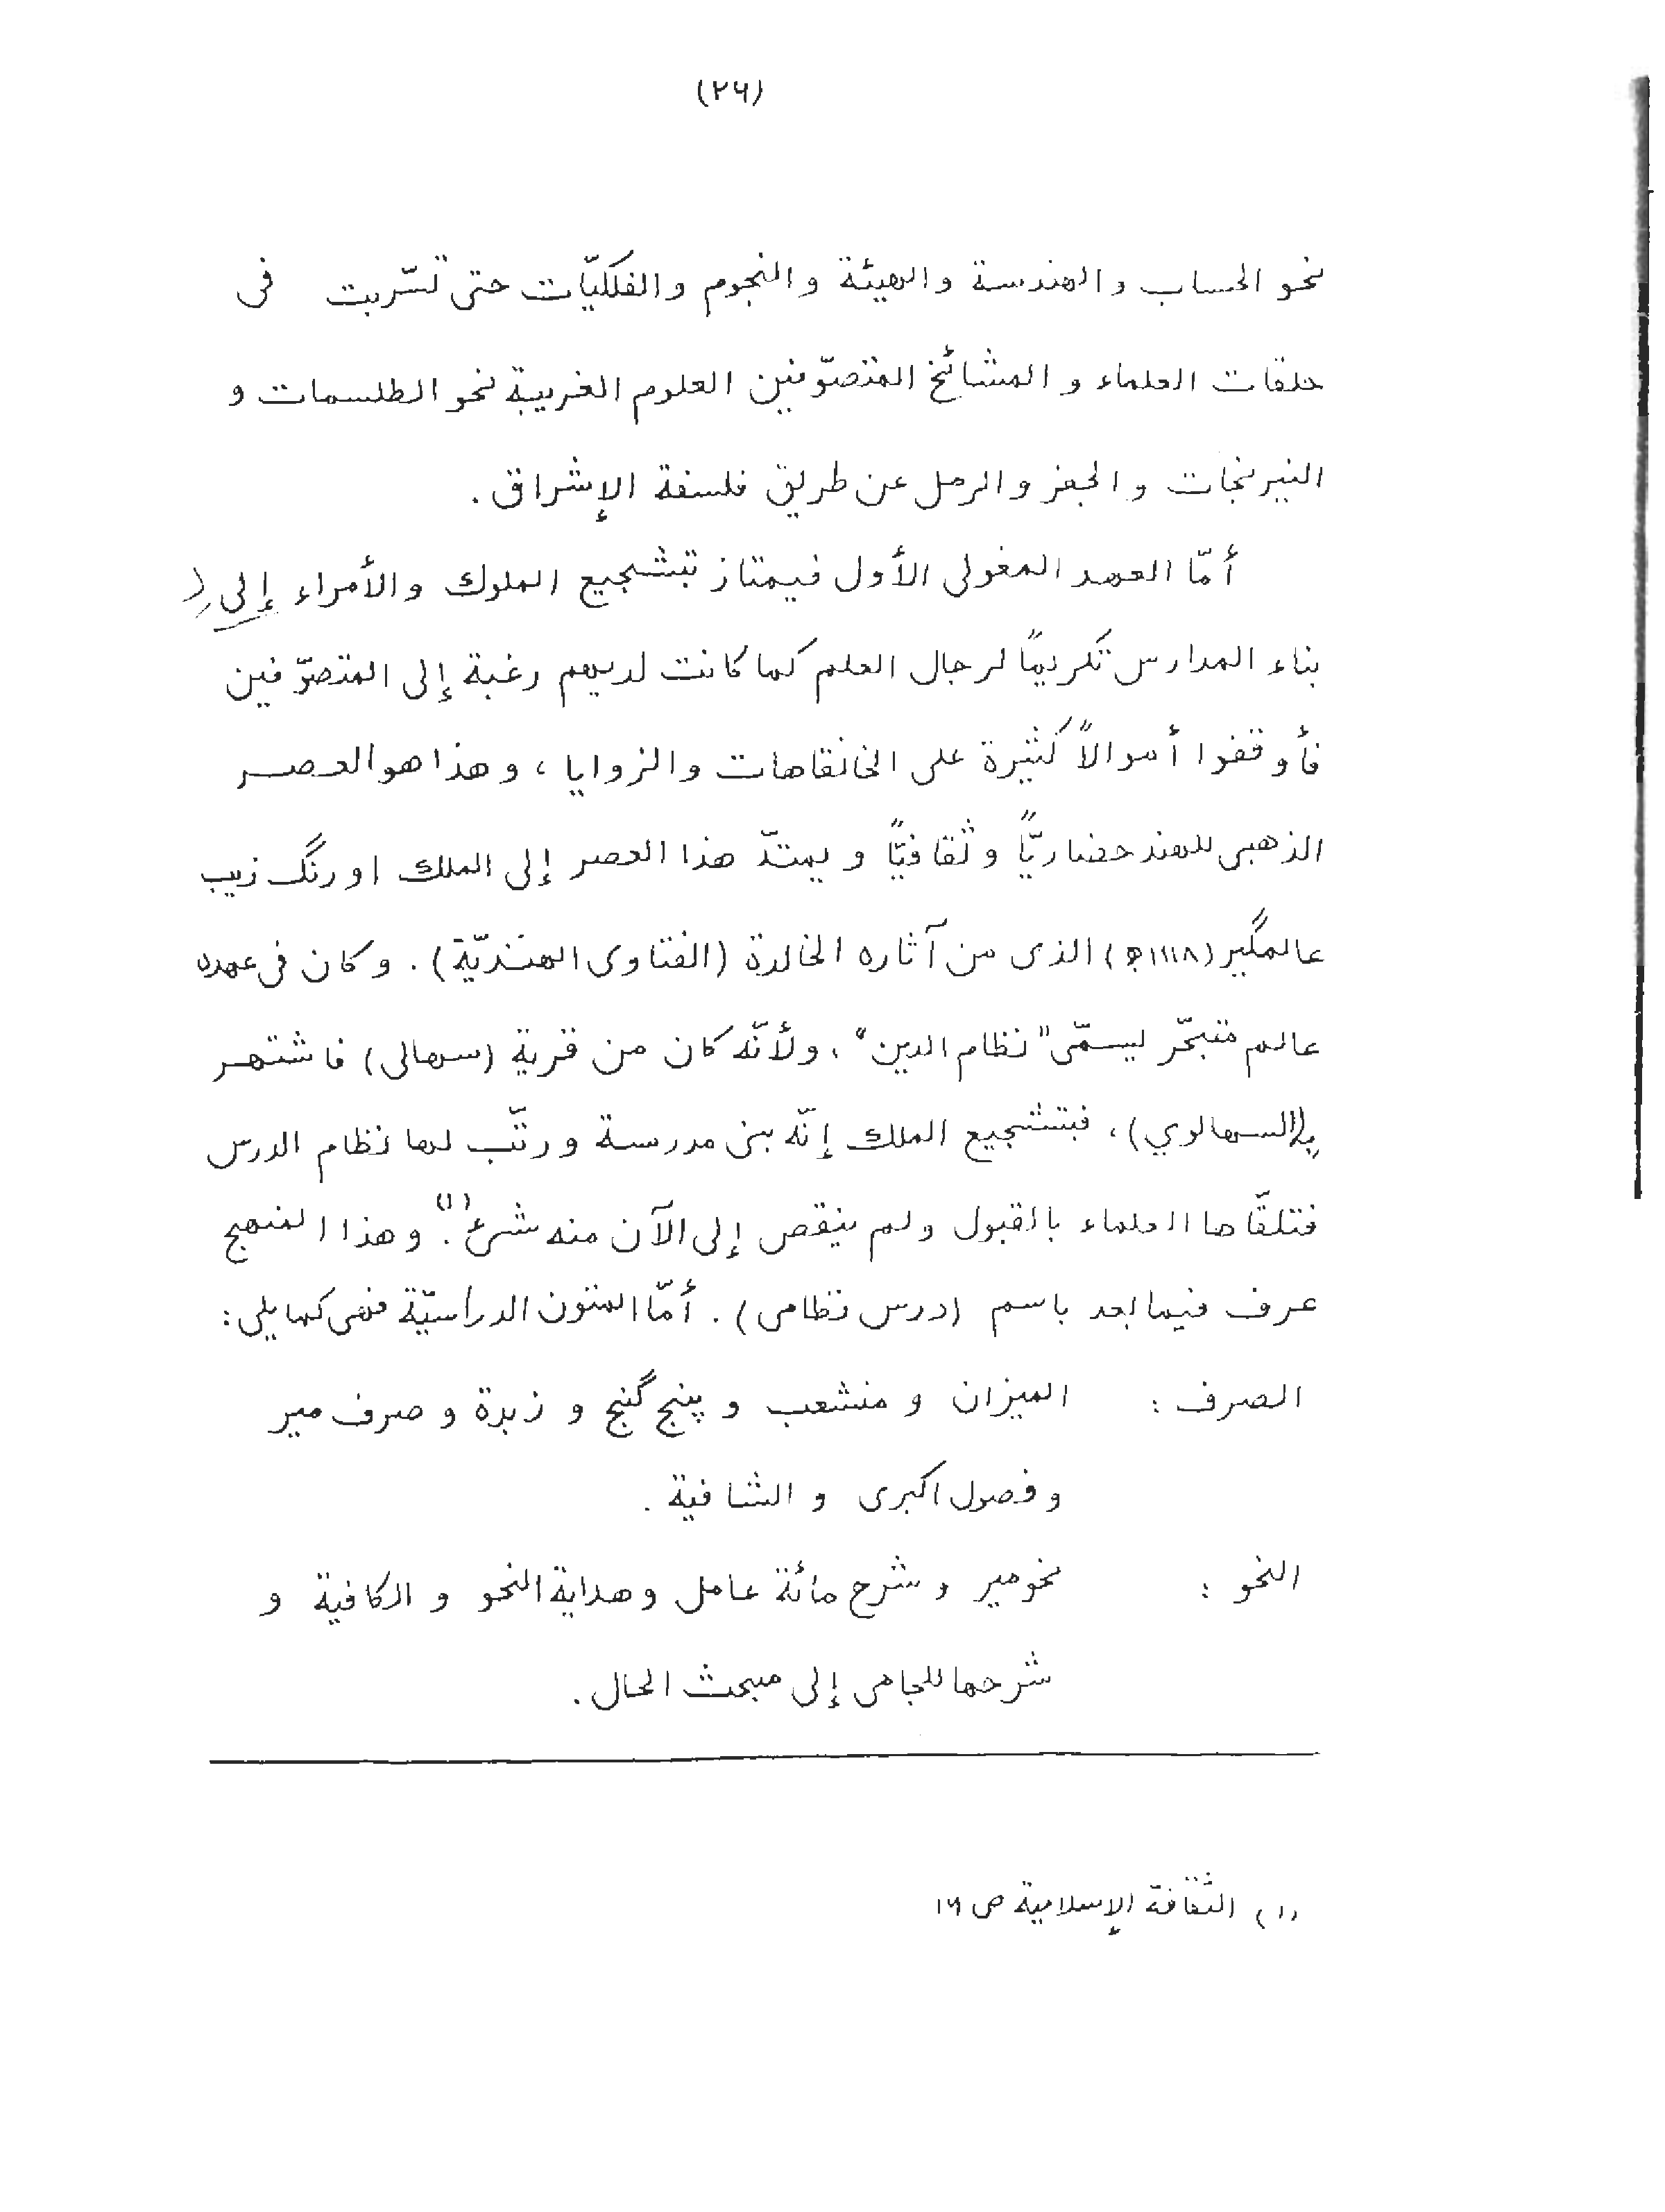 (٢٦)
نحو الحساب والهندسة والهيئة والنجوم والفلكيّات حتى تسّربت فى
حلقات العلماء و المشائخ المتصوّفين العلوم الغريبة نحو الطلسمات و
النيرنجات و الجفر والرمل عن طريق فلسفة الإشراق .
أمّا العهد المغولى الأول فيمتاز بتشجيع الملوك والأمراء إلى
بناء المدارس تكريمًا لرجال العلم كما كانت لديهم رغبة إلى المتصوّفين
فأوقفوا أموالاً كثيرة على الخانقاهات والزوايا ، وهذا هو العصر
الذهبى للهند حضاريًّا وثقافيًّا و يمتدّ هذا العصر إلى الملك اورنگ زيب
عالمگير (١١١٨ھ) الذى من آثاره الخالدة (الفتاوى الهنديّة) . وكان فى عهده
عالم متبحّر يسمّى "نظام الدين" ، ولأنّه كان من قرية (سهالى) فاشتهر
بـ(السهالوي) ، فبتشجيع الملك إنّه بنى مدرسة و رتّب لها نظام الدرس
فتلقّاها العلماء بالقبول ولم ينقص إلى الآن منه شئ (١) . وهذا المنهج
عرف فيما بعد باسم (درس نظامى) . أمّا المتون الدراسيّة فهى كما يلى :
الصرف : الميزان و منشعب و پنج گنج و زبدة و صرف مير
و فصول اكبرى و الشافية .
النحو : نحومير و شرح مائة عامل وهداية النحو و الكافية و
شرحها للجامى إلى مبحث الحال .
(١) الثقافة الإسلامية ص ١٦